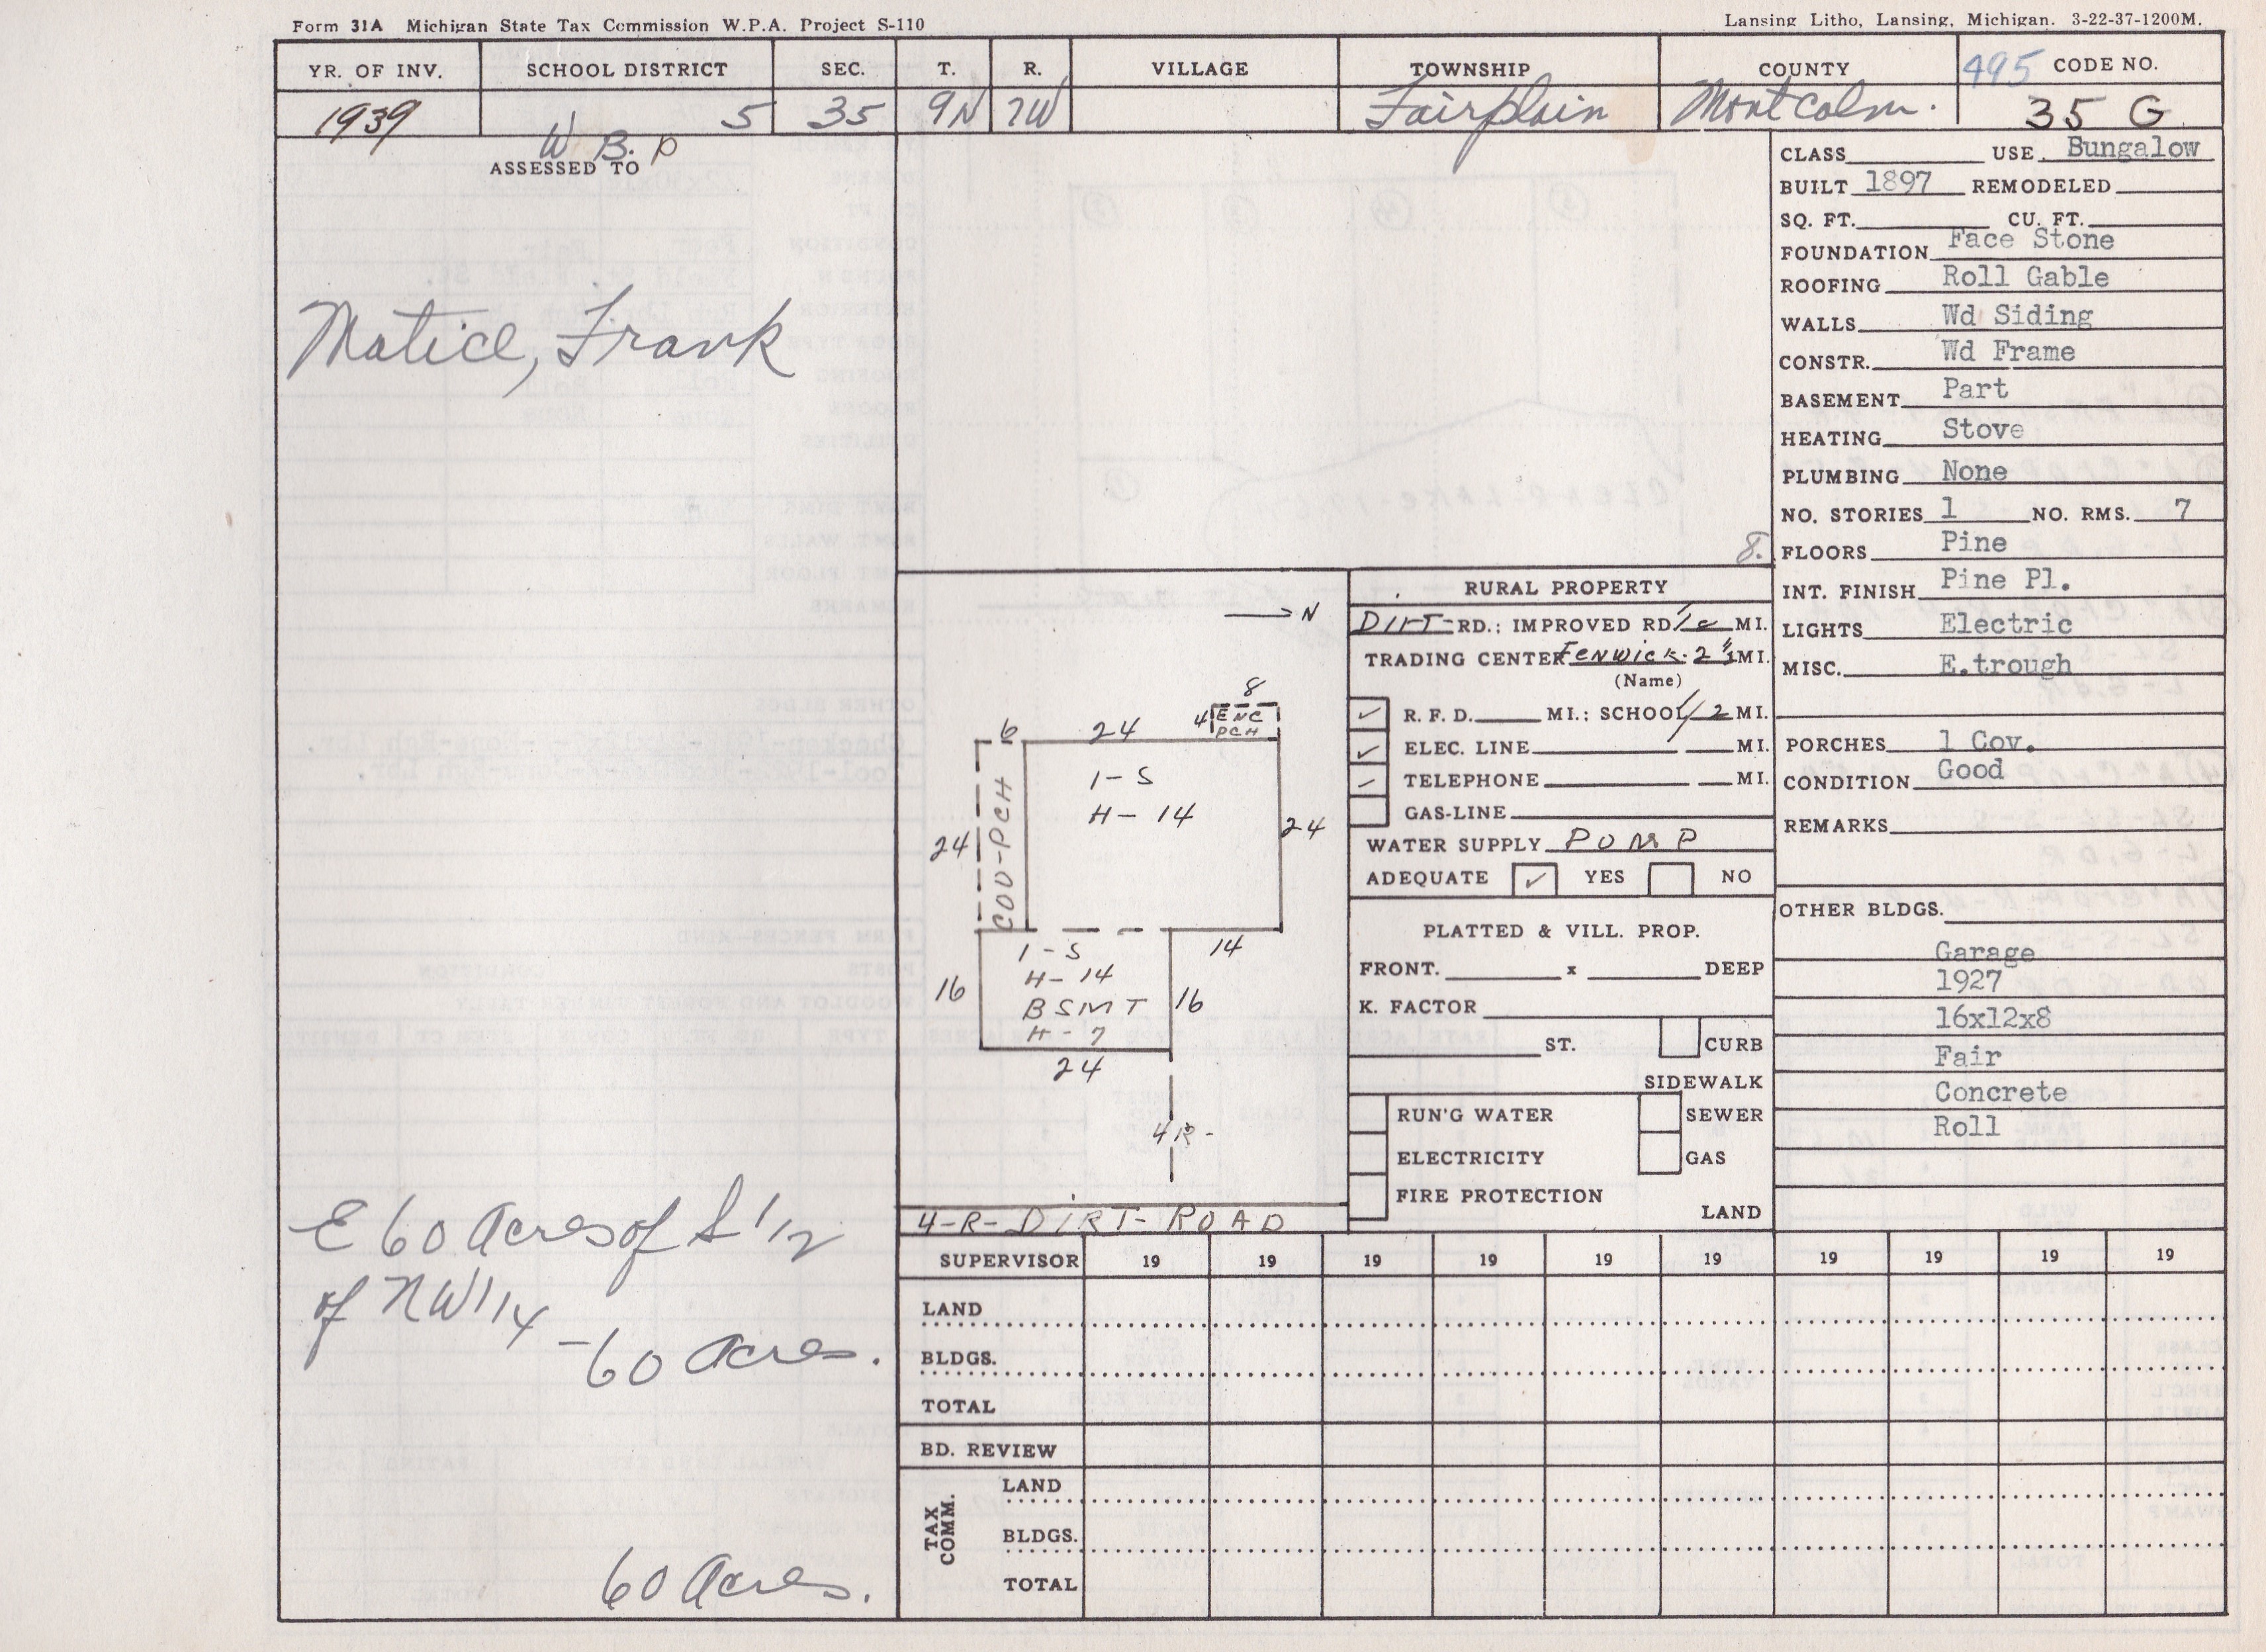 Form 31A Michigan State Tax Commission W.P.A. Project S-110
Lansing Litho, Lansing, Michigan. 3-22-37-1200M.
YR. OF INV. SCHOOL DISTRICT SEC. T. R. VILLAGE TOWNSHIP COUNTY 495 CODE NO.
1939 5 35 9N 7W Fairplain Montcalm. 35 G
W B. P
ASSESSED TO
Matice, Frank
E 60 Acres of S 1/2
of NW 1/4
-60 Acres.
60 Acres.
8.
CLASS USE Bungalow
BUILT 1897 REMODELED
SQ. FT. CU. FT.
FOUNDATION Face Stone
ROOFING Roll Gable
WALLS Wd Siding
CONSTR. Wd Frame
BASEMENT Part
HEATING Stove
PLUMBING None
NO. STORIES 1 NO. RMS. 7
FLOORS Pine
INT. FINISH Pine Pl.
LIGHTS Electric
MISC. E.trough
PORCHES 1 Cov.
CONDITION Good
REMARKS
OTHER BLDGS.
Garage
1927
16x12x8
Fair
Concrete
Roll
N
8
4 ENC
PCH
6 24
1-S
H- 14
24 COV-PCH 24
14
1-S
H- 14
BSMT
H- 7
16 16
24
4 R-
4-R-DIRT-ROAD
RURAL PROPERTY
DIRT RD.; IMPROVED RD. MI.
TRADING CENTER Fenwick- 2 1/2 MI.
(Name)
✓ R. F. D. MI.; SCHOOL 1/2 MI.
✓ ELEC. LINE MI.
TELEPHONE MI.
GAS-LINE
WATER SUPPLY PUMP
ADEQUATE ✓ YES NO
PLATTED & VILL. PROP.
FRONT. x DEEP
K. FACTOR
ST. CURB
SIDEWALK
RUN'G WATER SEWER
ELECTRICITY GAS
FIRE PROTECTION
LAND
SUPERVISOR 19 19 19 19 19 19 19 19 19 19
LAND
BLDGS.
TOTAL
BD. REVIEW
TAX COMM.
LAND
BLDGS.
TOTAL